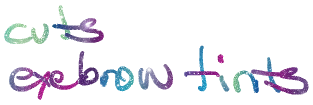 cuts
eyebrow tints